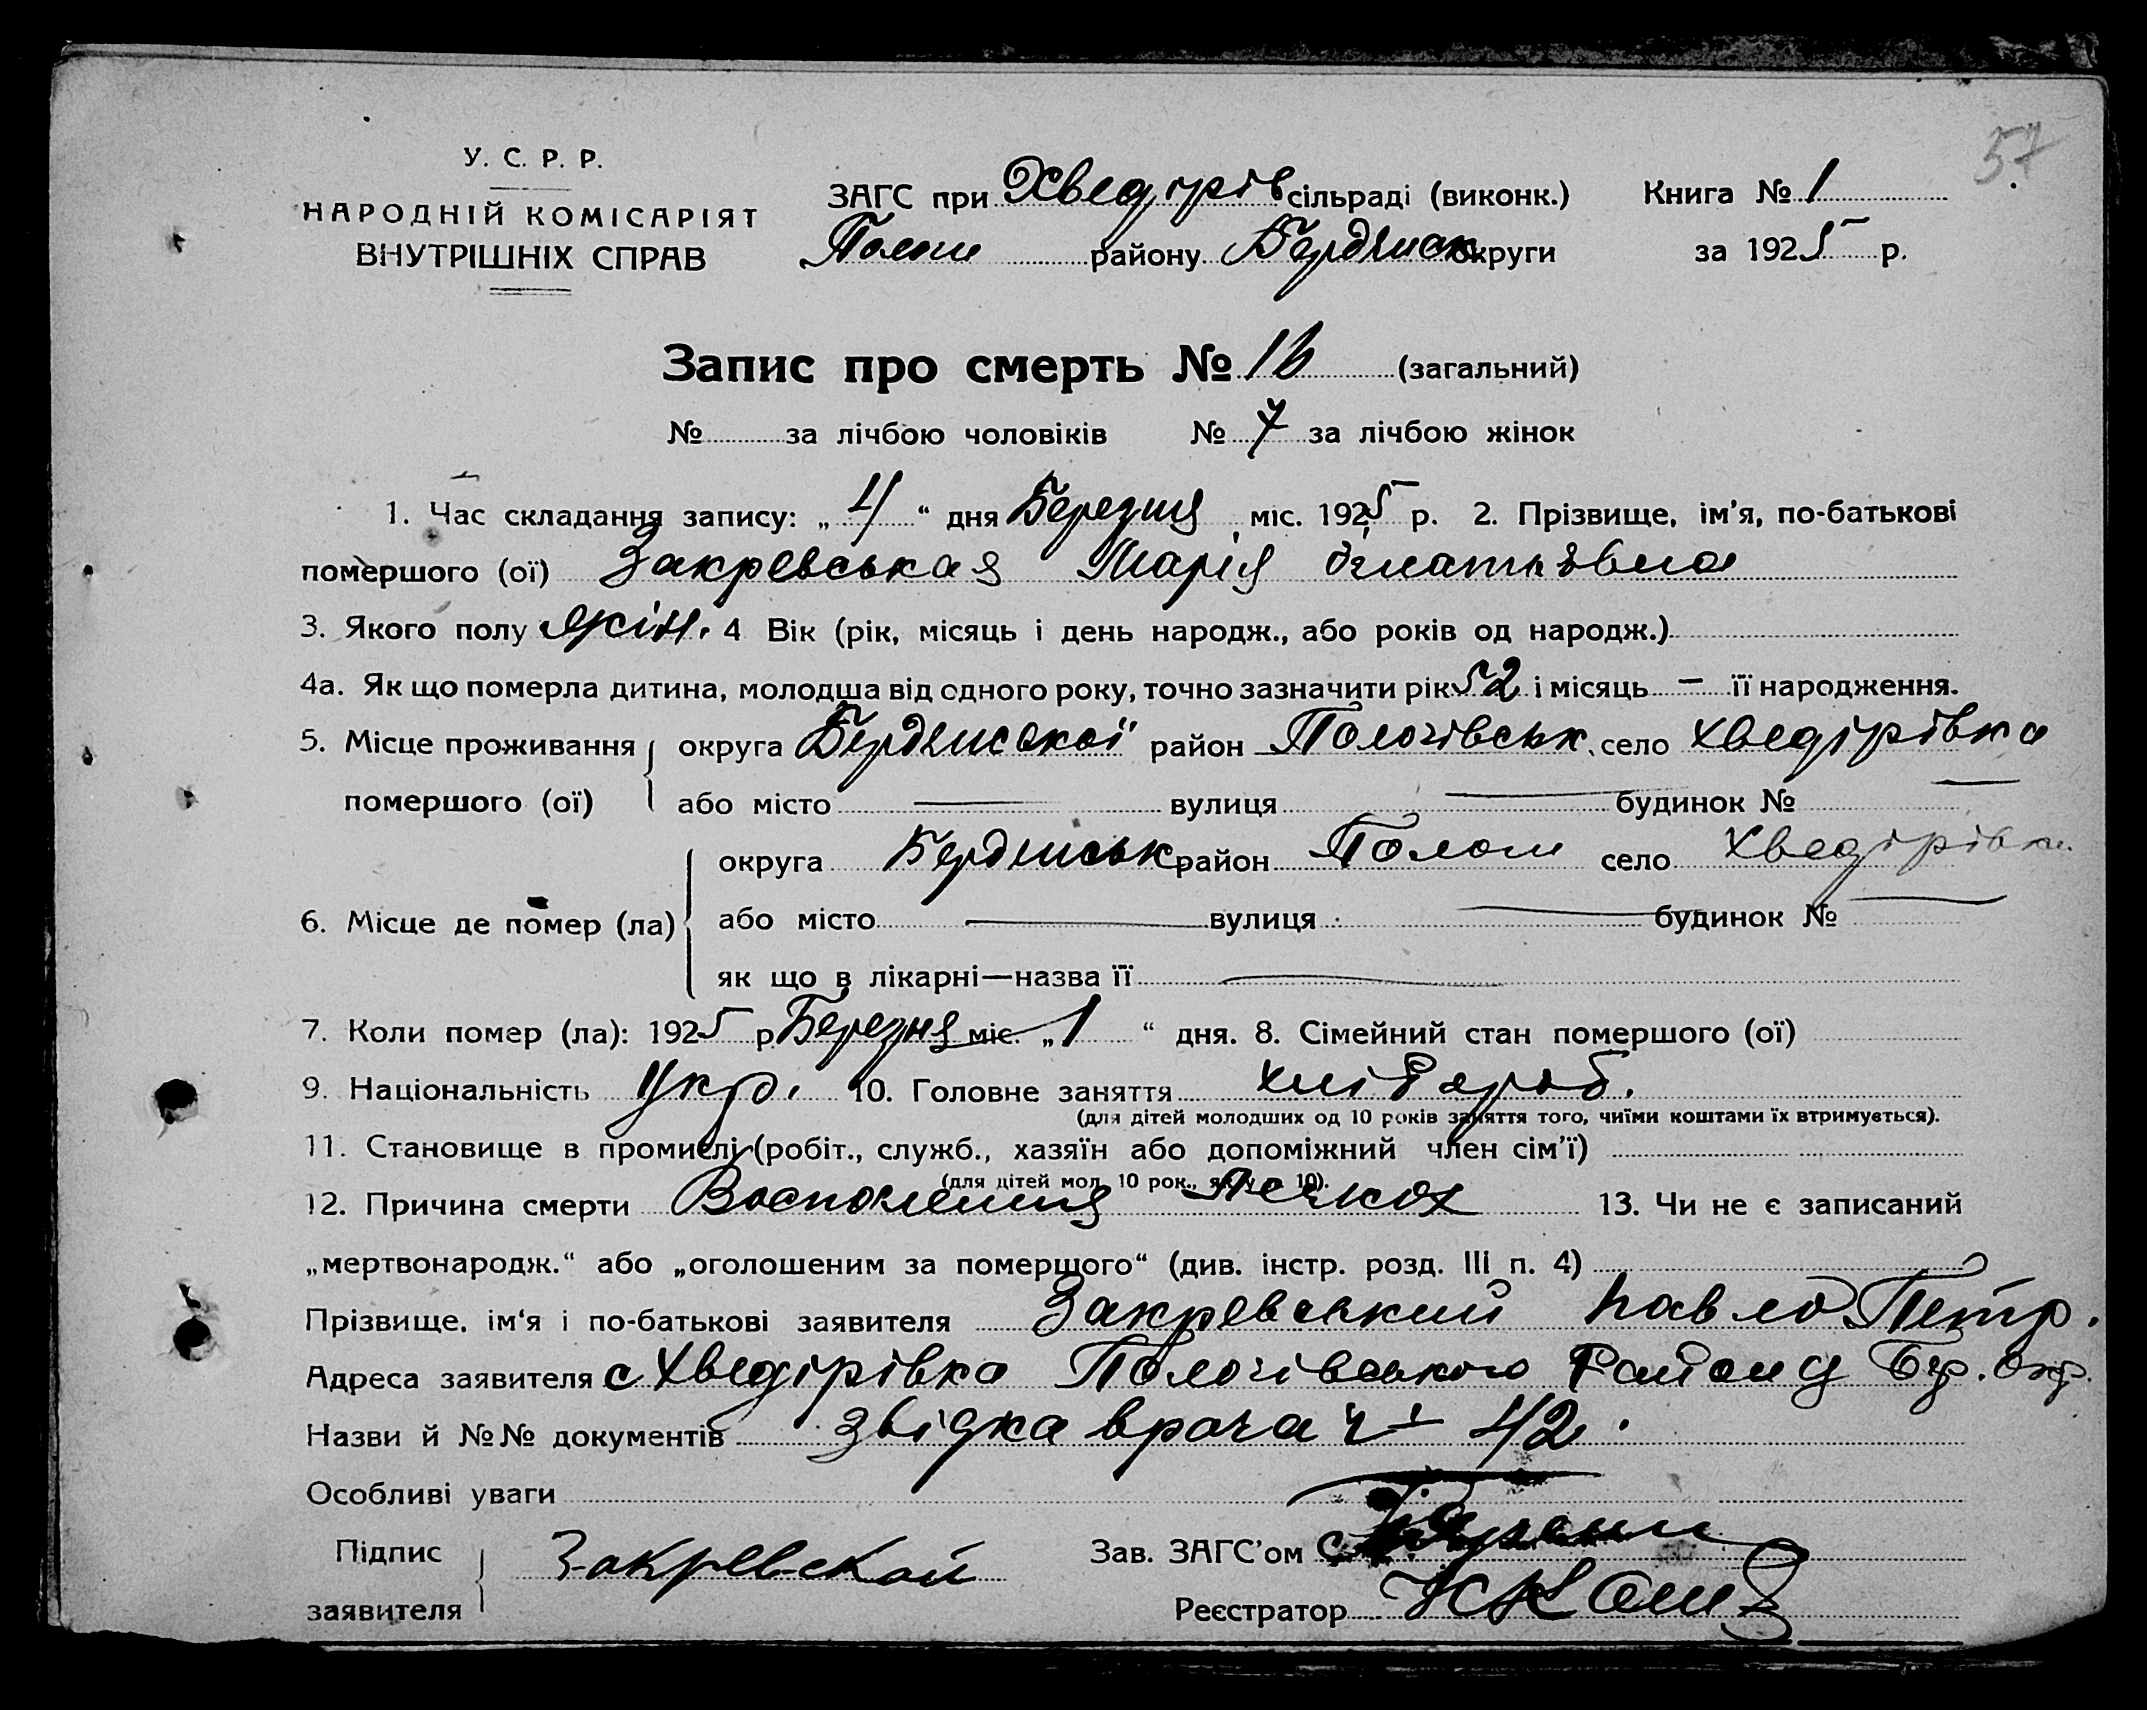 57
У. С. Р. Р.
НАРОДНІЙ КОМІСАРІЯТ
ВНУТРІШНІХ СПРАВ
ЗАГС при Хведірів сільраді (виконк.) Книга № 1
Пологи району Бердянск округи за 1925 р.
Запис про смерть № 16 (загальний)
№ за лічбою чоловіків № 7 за лічбою жінок
1. Час складання запису: „4“ дня Березня міс. 1925 р. 2. Прізвище, ім'я, по-батькові
помершого (ої) Закревськая Марія Ігнатьевна
3. Якого полу жін. 4 Вік (рік, місяць і день народж., або років од народж.)
4а. Як що померла дитина, молодша від одного року, точно зазначити рік 52 і місяць — її народження.
5. Місце проживання округа Бердянської район Пологівськ. село Хведірівка
помершого (ої) або місто — вулиця — будинок № —
округа Бердянськ район Пологи село Хведірівка
6. Місце де помер (ла) або місто — вулиця — будинок № —
як що в лікарні—назва її —
7. Коли помер (ла): 1925 р. Березня міс. „1“ дня. 8. Сімейний стан помершого (ої)
9. Національність Укр. 10. Головне заняття хлібороб.
(для дітей молодших од 10 років заняття того, чиїми коштами їх втримується).
11. Становище в промислі (робіт., служб., хазяїн або допоміжний член сім'ї)
(для дітей мол. 10 рок., як у п. 10).
12. Причина смерти Восполения Легких 13. Чи не є записаний
„мертвонародж.“ або „оголошеним за помершого“ (див. інстр. розд. III п. 4)
Прізвище, ім'я і по-батькові заявителя Закревський Павло Петр.
Адреса заявителя с Хведірівка Пологівського Району Бер. Окр.
Назви й №№ документів звідка врача 42.
Особливі уваги
Підпис Закревской Зав. ЗАГС'ом
заявителя Реєстратор